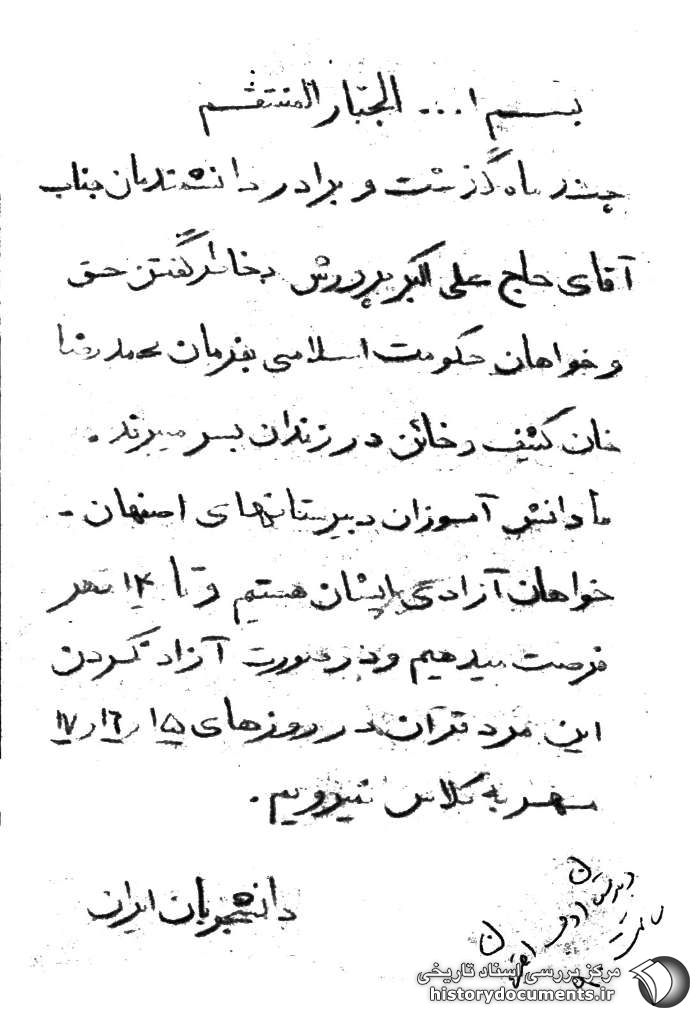 بسم ا... الجبار المنتقم
چند ماه گذشت و برادر دانشمندمان جناب
آقای حاج علی اکبر پرورش بخاطر گفتن حق
و خواهان حکومت اسلامی بفرمان محمد رضا
خان کثیف و خائن در زندان بسر میبرند.
ما دانش آموزان دبیرستانهای اصفهان -
خواهان آزادی ایشان هستیم و تا ۱۴ مهر
فرصت میدهیم و در صورت آزاد نکردن
این مرد قرآن در روزهای ۱۵ ر ۱۶ ر ۱۷
مهر به کلاس نمیرویم.
دانشجویان ایران
دبیرستان ادب
مرکز بررسی اسناد تاریخی
historydocuments.ir